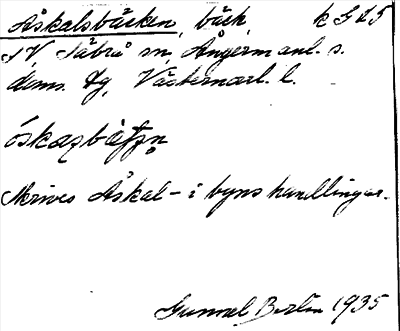 Åskalsbäcken, bäck, k G 25
SV, Säbrå sn, Ångermanl. s.
doms. dg, Västernorrl. l.
Skrives Åskal- i byns handlingar.
Gunnel Berlin 1935